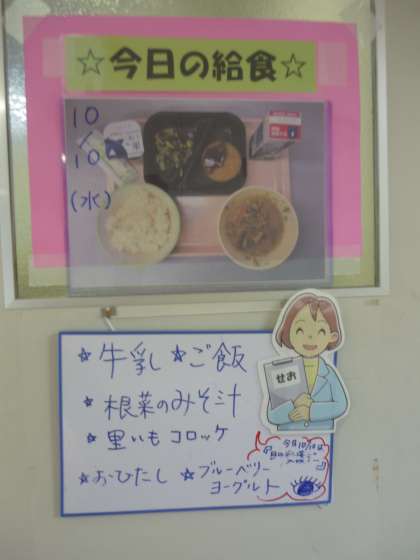 ☆今日の給食☆
10
10
(水)
★牛乳 ★ご飯
★根菜のみそ汁
★里いもコロッケ
★おひたし ★ブルーベリー
ヨーグルト
せお
今日10/10は